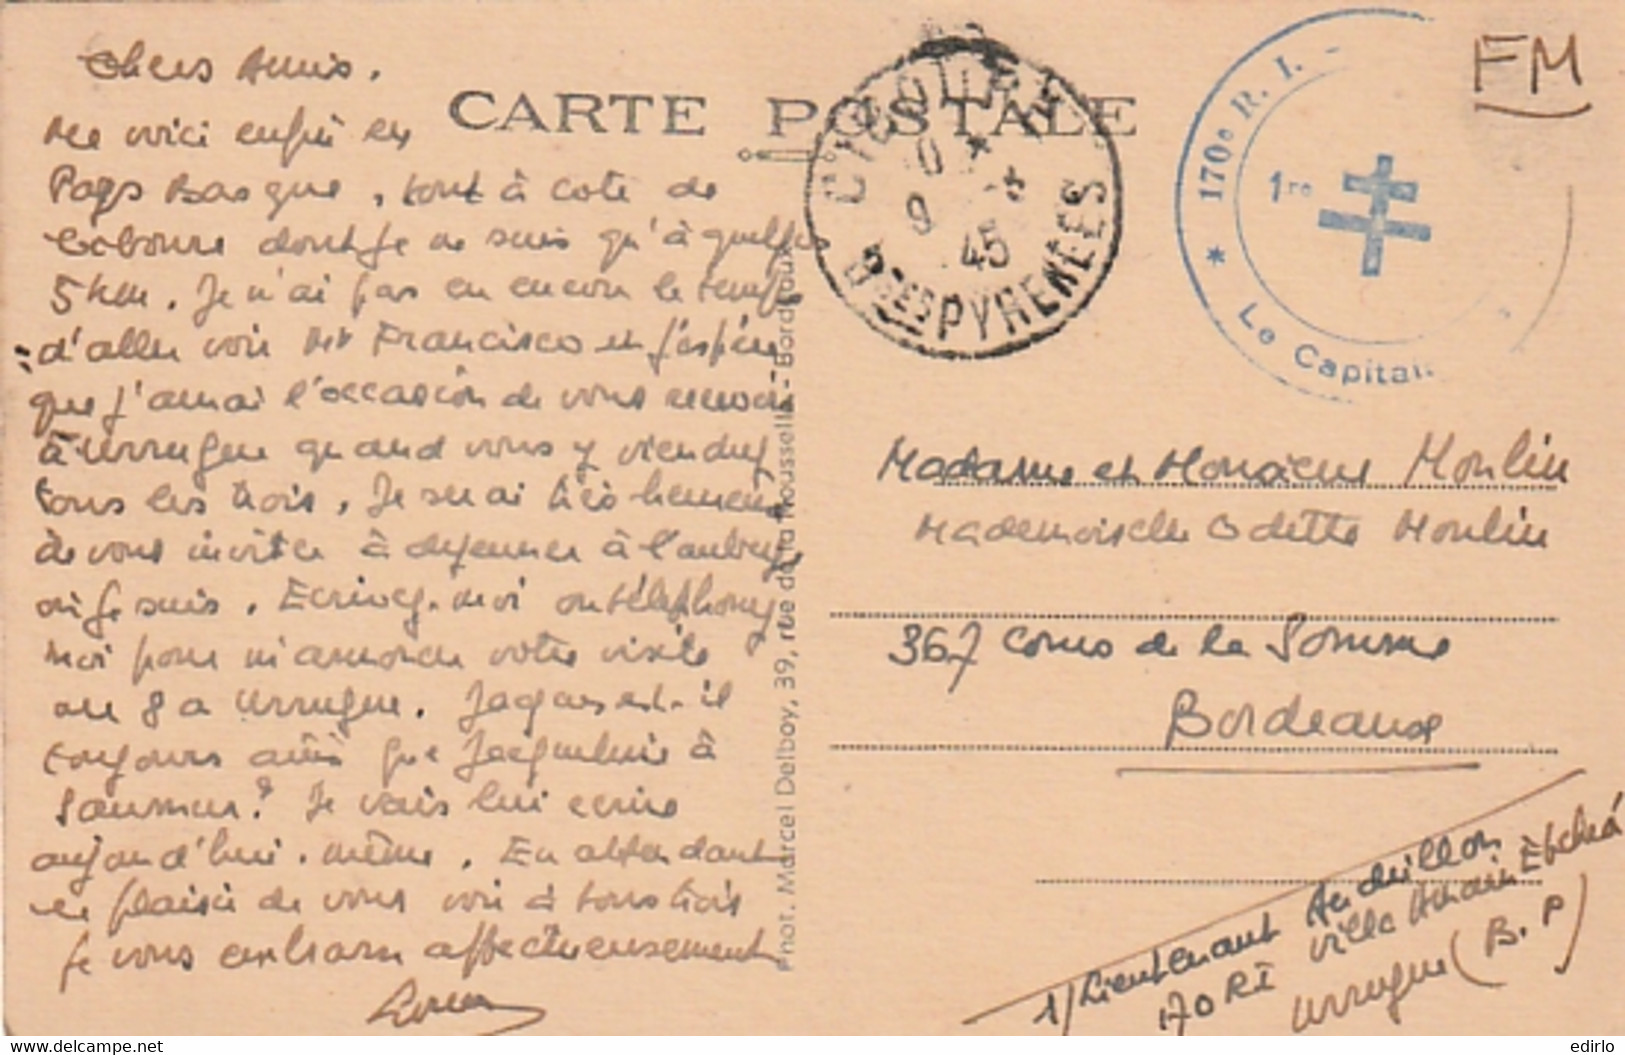 Chers Amis.
Me voici enfin en
Pays Basque, tout à coté de
dont je ne suis qu'à quelques
5 km. Je n'ai pas eu encore le temps
d'aller voir Mr Francisco et j'espère
que j'aurai l'occasion de vous revoir
à Urrugne quand vous y viendrez
tous les trois. Je serai très heureux
de vous inviter à déjeuner à l'auberge
où je suis. Ecrivez-moi ou téléphonez
moi pour m'annoncer votre visite
au 8 a Urrugne. Jacques est-il
toujours ainsi que Jacqueline à
Saumur? Je vais lui ecrire
aujourd'hui-même. En attendant
le plaisir de vous voir à tous trois
je vous embrasse affectueusement
CARTE POSTALE
Phot. Marcel Delboy, 39, rue de la Rousselle - Bordeaux
CIBOURE
9 45
Bses PYRENEES
170e R. I.
1re
Le Capitai
FM
Madame et Monsieur Moulin
Mademoiselle Odette Moulin
367 Cours de la Somme
Bordeaux
1/ Lieutenant Audrillon
170 RI Villa Etcheá
Urrugne (B. P)
Vendeur: edirlo
© delcampe.net